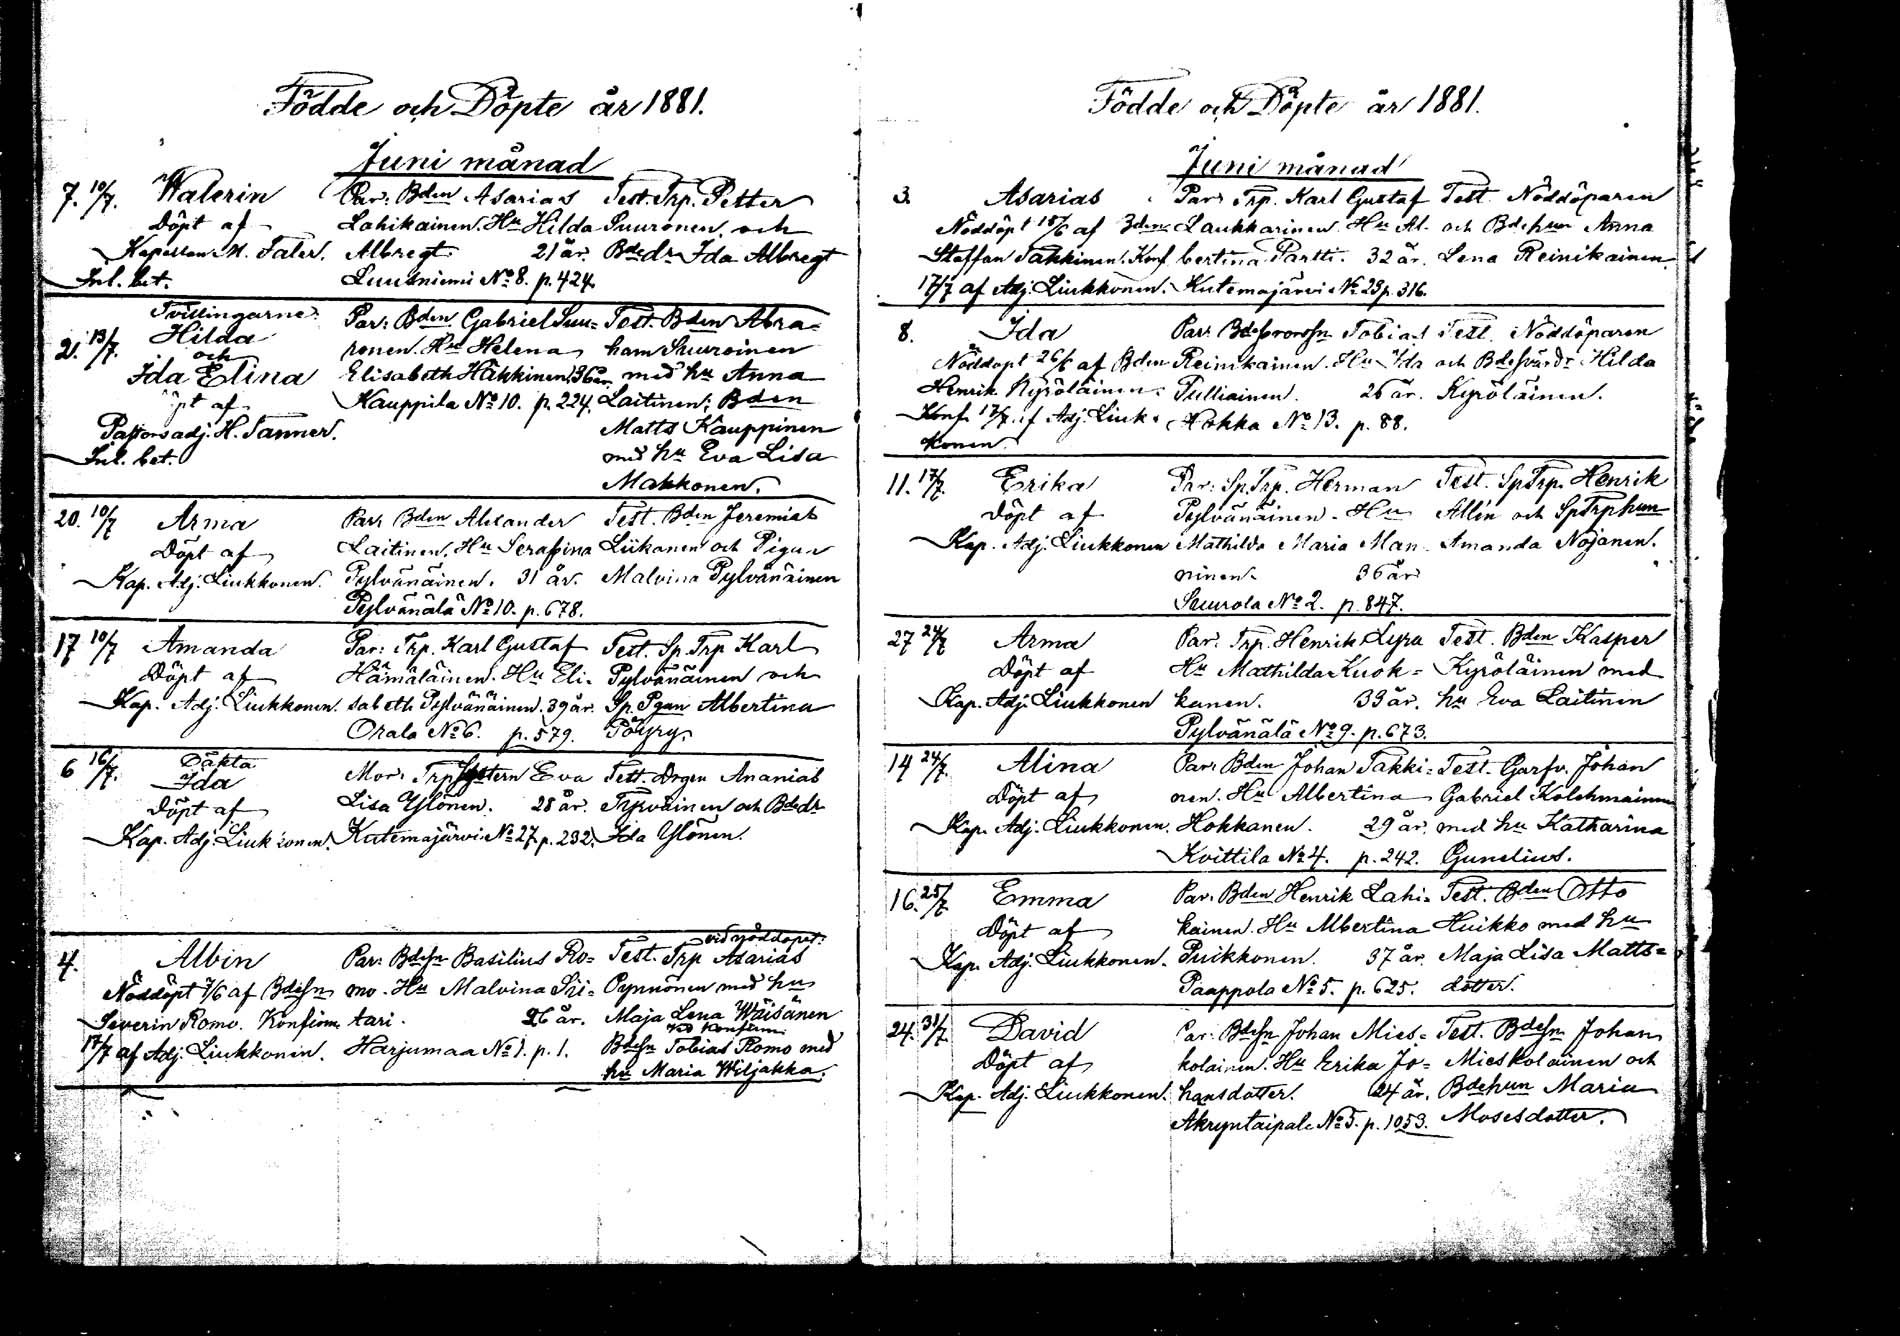 Födde och Döpte år 1881.
Juni månad
7. 10/7. Walerin Par: Bden Asarias Test. Trp. Petter
Döpt af Lahikainen. Hu Hilda Suuronen, och
Kapellan M. Taler. Albregt 21 år. Bdedr Ida Albregt
Inl. bet. Luusniemi No 8. p. 424.
Tvillingarne:
21. 13/7. Hilda Par: Bden Gabriel Suu= Test. Bden Abra=
och ronen. Hu Helena ham Suuroinen
Ida Elina Elisabeth Häkkinen 36 år. med hu Anna
öpt af Kauppila No 10. p. 224. Laitinen; Bden
Pastorsadj. H. Tanner. Matts Kauppinen
Inl. bet. med hu Eva Lisa
Makkonen.
20. 10/7 Arma Par: Bden Alexander Test. Bden Jeremias
Döpt af Laitinen. Hu Serafina Liikanen och Pigan
Kap. Adj. Liukkonen. Pylvänäinen. 31 år. Malvina Pylvänäinen
Pylvänälä No 10. p. 678.
17 10/7 Amanda Par: Trp. Karl Gustaf Test. Sp. Trp Karl
Döpt af Hämäläinen. Hu Eli- Pylvänäinen och
Kap. Adj. Liukkonen. sabeth Pylvänäinen. 39 år. Sp. Pgan Albertina
Orala No 6. p. 579. Pöyry.
Oäkta
6 16/7. Ida Mor: Trp Systern Eva Test. Drgen Ananias
Döpt af Lisa Ylönen. 28 år. Tyrväinen och Bdedr
Kap. Adj. Liukkonen. Kutemajärvi No 27. p. 232. Ida Ylönen.
vid nöddopet:
4. Albin Par: Bdesn Basilius Ro= Test. Trp Asarias
Nöddöpt 7/6 af Bdesn mo. Hu Malvina Sii= Pynnönen med hu
Severin Romo. Konfirm. tari. 26 år. Maja Lena Wäisänen
vid konfirm.
17/7 af Adj. Liukkonen. Harjumaa No 1. p. 1. Bdesn Tobias Romo med
hu Maria Wiljakka.
Födde och Döpte år 1881.
Juni månad
3. Asarias Par: Trp. Karl Gustaf Test. Nöddöparen
Nöddöpt 15/6 af Bden Laukkarinen. Hu Al- och Bdehun Anna
Staffan Takkinen. Konf. bertina Partti. 32 år. Lena Reinikainen.
17/7 af Adj. Liukkonen. Kutemajärvi No 29 p. 316.
8. Ida Par: Tobias Test. Nöddöparen
Nöddöpt 26/6 af Bden Reinikainen. Hu Ida och Hilda
Henrik Kyröläinen. Tulliainen. 26 år. Kyröläinen.
Konf. 17/7 af Adj. Liuk- Hokka No 13. p. 88.
konen.
11. 17/7. Erika Par: Sp. Trp. Herman Test. Sp Trp. Henrik
Döpt af Pylvänäinen. Hu Allin och Sp Trphun
Kap. Adj. Liukkonen Mathilda Maria Man- Amanda Nojonen.
ninen. 36 år
Suurola No 2. p. 847.
27 24/7 Arma Par: Trp. Henrik Lyra Test. Bden Kasper
Döpt af Hu Mathilda Kuok= Kyröläinen med
Kap. Adj. Liukkonen kanen. 33 år. hu Eva Laitinen
Pylvänälä No 9. p. 673.
14 24/7. Alina Par: Bden Johan Takki= Test. Garfv. Johan
Döpt af nen. Hu Albertina Gabriel Kolehmainen
Kap. Adj. Liukkonen. Hokkanen. 29 år. med hu Katharina
Kvittila No 4. p. 242. Gunelius.
16. 25/7 Emma Par. Bden Henrik Lahi= Test. Bden Otto
Döpt af kainen. Hu Albertina Huikko med hu
Kap. Adj. Liukkonen. Puikkonen. 37 år. Maja Lisa Matts=
Paappola No 5. p. 625. dotter.
24. 31/7. David Par: Bdesn Johan Mies= Test. Bdesn Johan
Döpt af kolainen. Hu Erika Jo= Mieskolainen och
Kap. Adj. Liukkonen. hansdotter. 24 år. Bdehun Maria
Akryntaipale No 5. p. 1053. Mosesdotter.